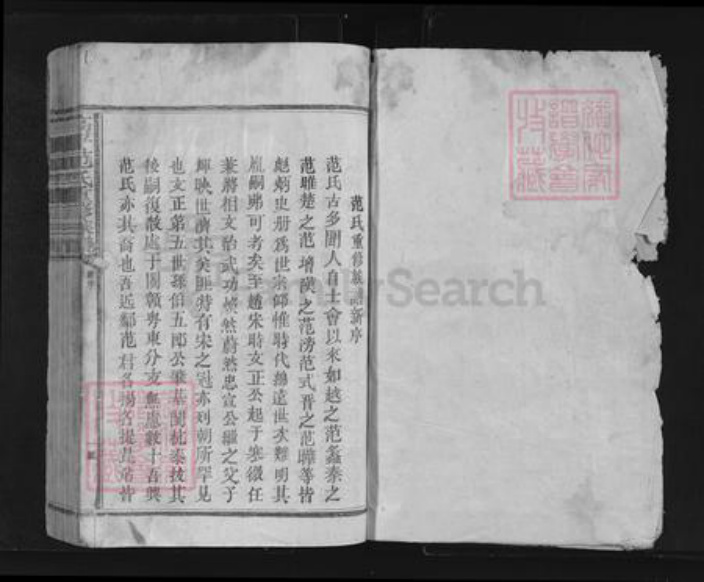 范氏重修族譜新序
范氏古多聞人自士會以來如越之范蠡秦之
范雎楚之范增漢之范滂范式晋之范曄等皆
彪炳史册爲世宗師惟時代綿遠世次難明其
胤嗣弗可考矣至趙宋時文正公起于寒微任
兼將相文治武功煥然蔚然忠宣公繼之父子
輝映世濟其美匪特有宋之冠亦列朝所罕見
也文正第五世孫伯五郎公肇基閩杭泰拔其
後嗣復散處于閩贛粤東分支無慮數十吾興
范氏亦其裔也吾近鄰范君名揚名提昆
FamilySearch